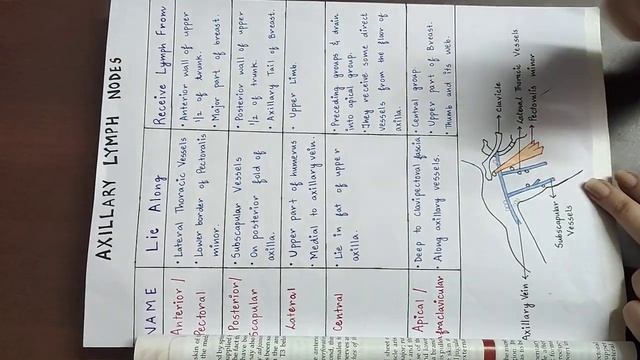 AXILLARY LYMPH NODES
NAME
Lie Along
Receive Lymph From
Anterior/
Pectoral
• Lateral Thoracic Vessels
• Lower border of Pectoralis
minor.
• Anterior wall of upper
1/2 of trunk.
• Major part of breast.
Posterior/
scapular
• Subscapular Vessels
On posterior fold of
axilla.
• Posterior wall of upper
1/2 of trunk
• Axillary Tail of Breast.
Lateral
• Upper part of humerus
• Medial to axillary vein.
• Upper Limb.
Central
• Lie in fat of upper
axilla.
• Preceding groups & drain
into apical group.
• They receive some direct
vessels from the floor of
axilla.
Apical /
fraclavicular
• Deep to Clavipectoral fascia
• Along axillary vessels.
• Central group
• Upper part of Breast.
Thumb and its web.
Clavicle
Lateral Thoracic Vessels
Pectoralis minor
Subscapular
Vessels
Axillary Vein